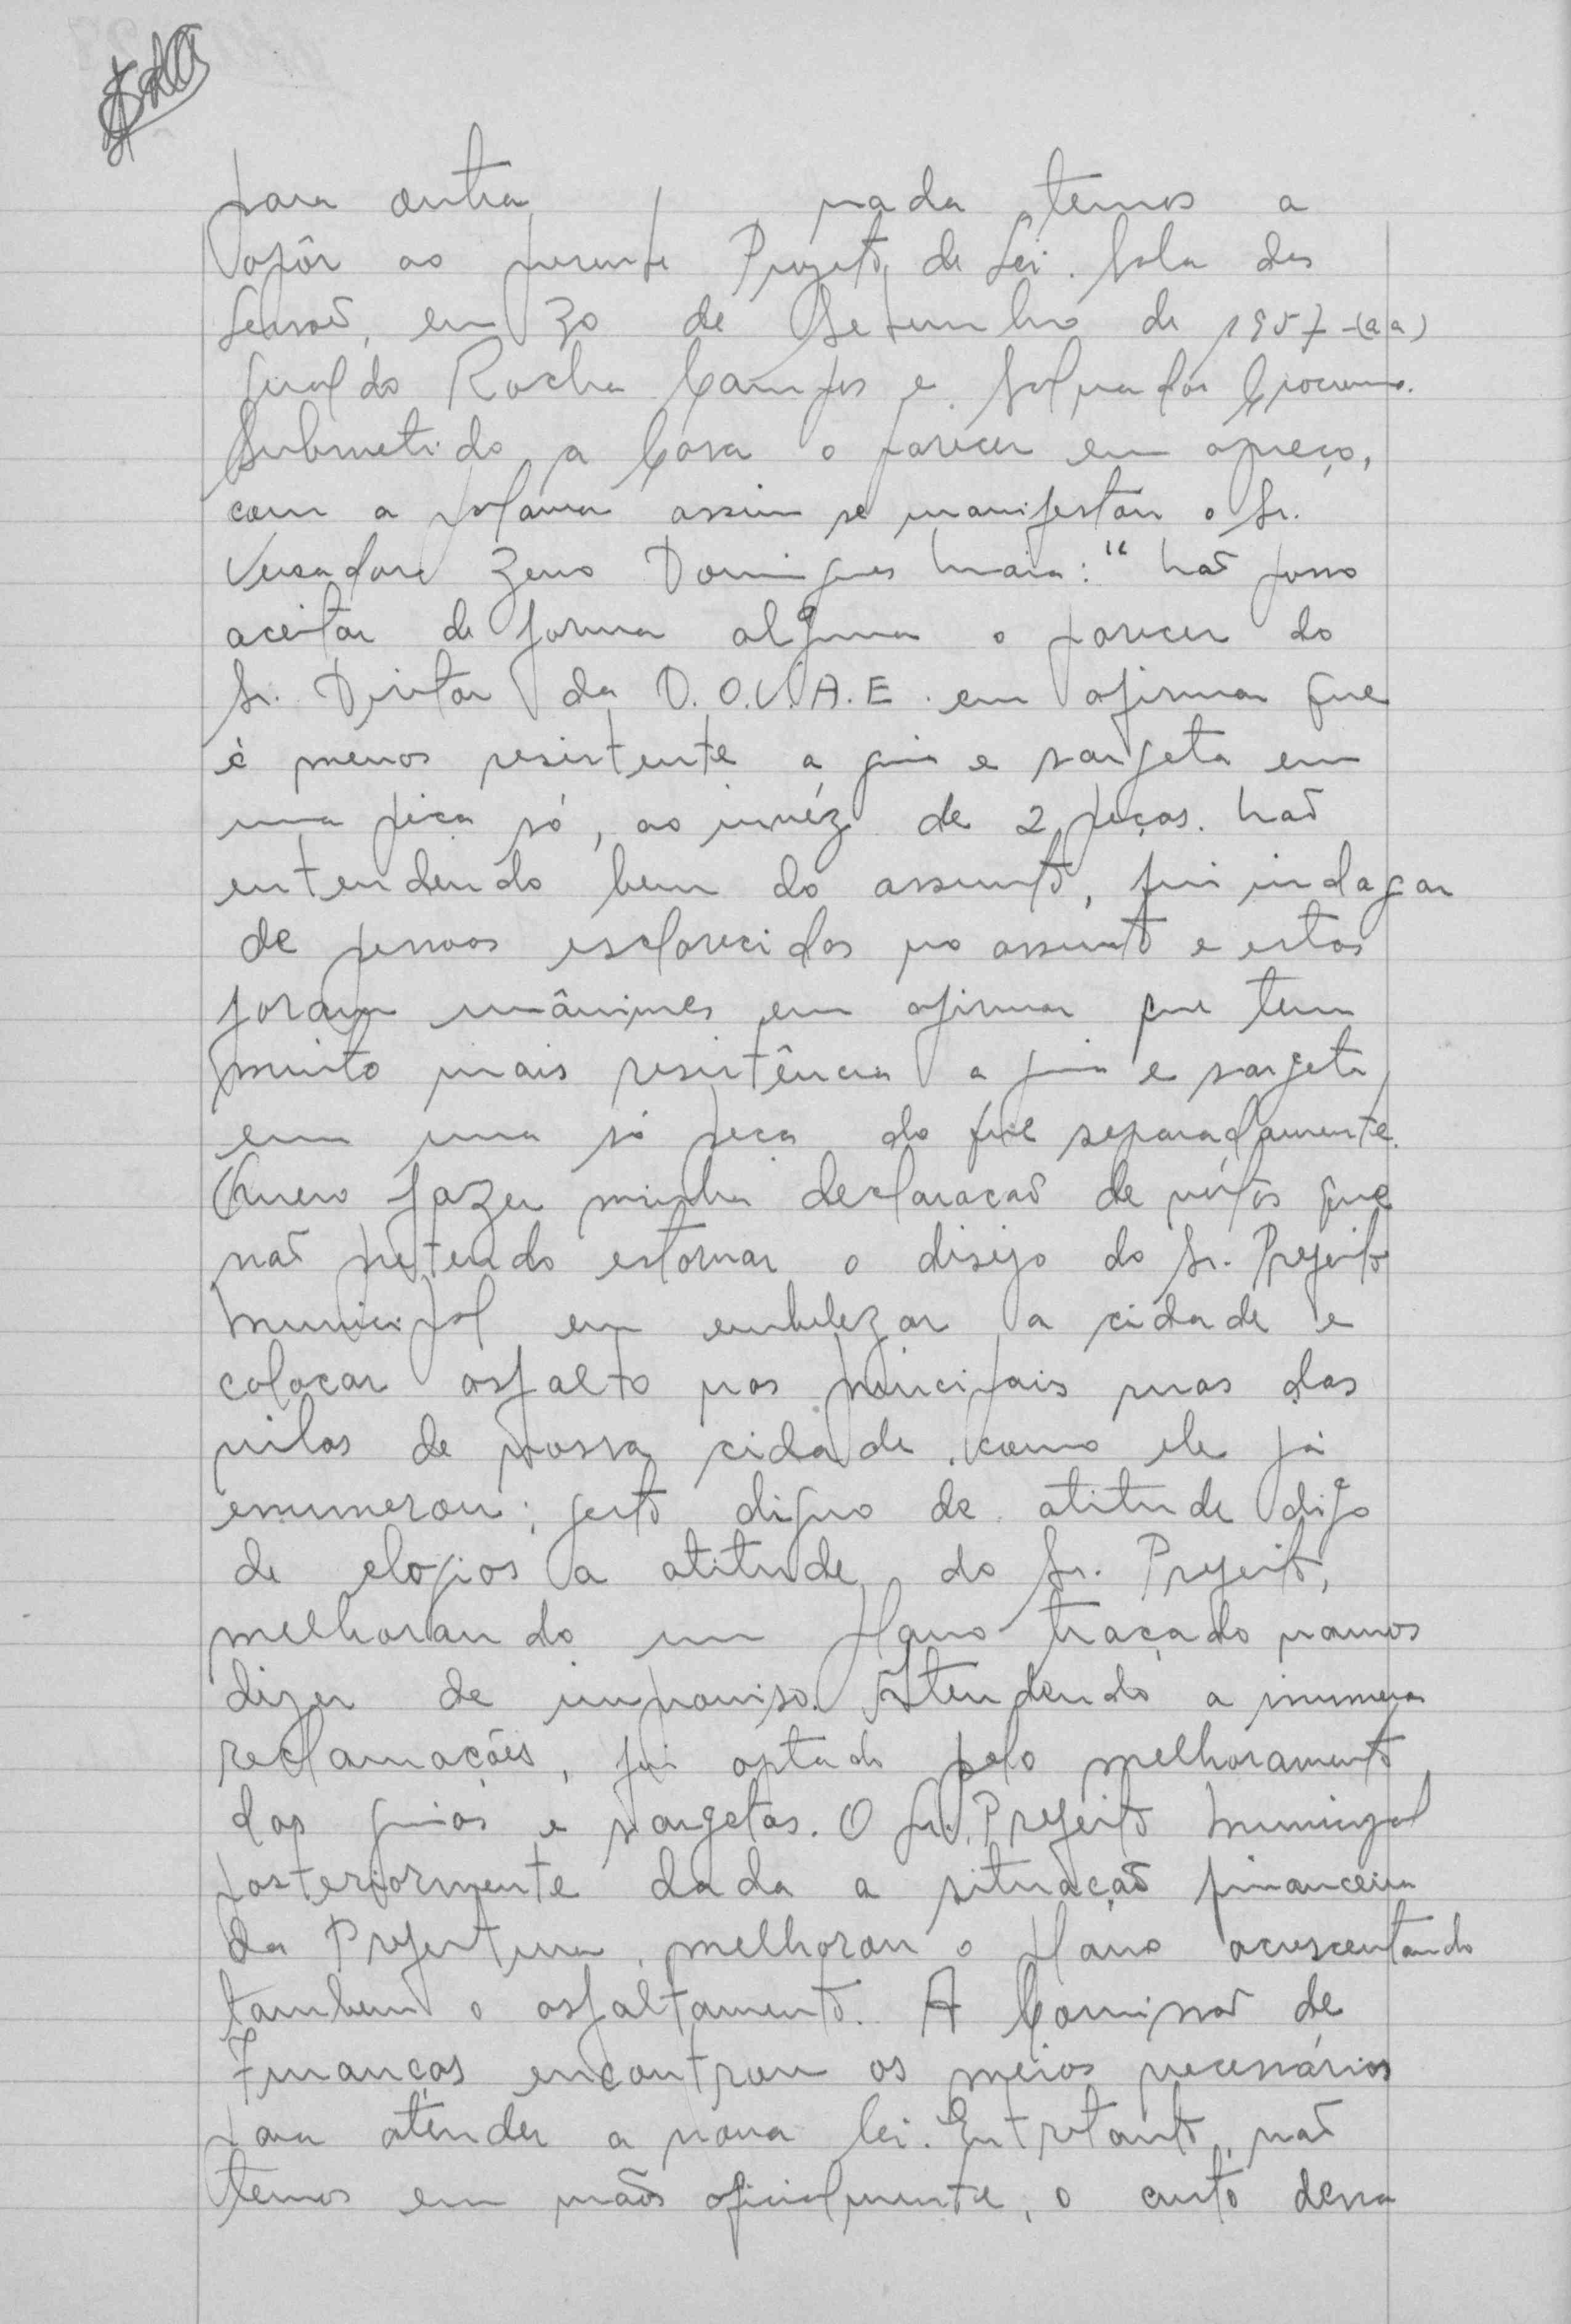 para outra nada temos a
opôr ao presente Projeto de Lei. Sala das
Sessoẽs, em 30 de Setembro de 1957-(aa)
Geraldo Rocha Campos e Salvador
Submetido a Casa o parecer em apreço,
com a palavra assim se manifestou o Sr.
Vereador Zeno Domingues Maia: "Não posso
aceitar de forma alguma o parecer do
Sr. Diretor da D.O.V.A.E. em afirmar que
é menos resistente a guia e sargeta em
uma peça só, ao invéz de 2 peças. Não
entendendo bem do assunto, fui indagar
de pessoas esclarecidas no assunto e estas
foram unânimes em afirmar que tem
muito mais resistência a guia e sargeta
em uma só peça do que separadamente.
Quero fazer minha declaração de votos que
não pretendo estornar o disejo do Sr. Prefeito
Municipal em embelezar a cidade e
colocar asfalto nas principais ruas das
vilas de nossa cidade como ele já
enumerou; gesto digno de atitude digo
de elogios a atitude do Sr. Prefeito,
melhorando um plano traçado vamos
dizer de improviso. Atendendo a inumeras
reclamações, foi optado pelo melhoramento
das guias e sargetas. O Sr. Prefeito Municipal
posteriormente dada a situação financeira
da Prefeitura, melhorou o plano acrescentando
tambem o asfaltamento. A Comissão de
Finanças encontrou os meios necessários
para atender a nova lei. Entretanto, não
temos em mãos oficialmente, o custo dessa